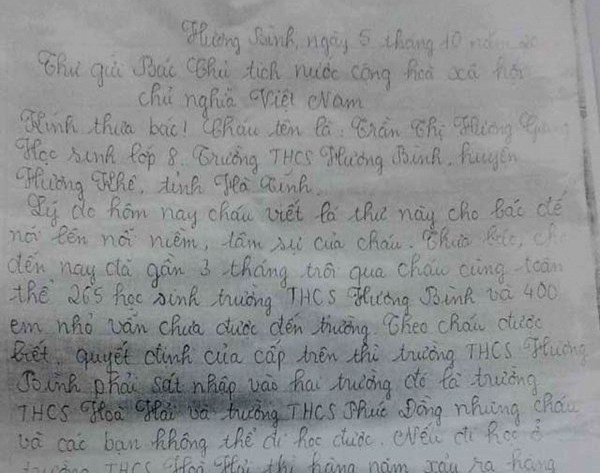 Hương Bình, ngày 5 tháng 10 năm 20
Thư gửi Bác Chủ tịch nước cộng hoà xã hội
chủ nghĩa Việt Nam
Kính thưa bác! Cháu tên là: Trần Thị Hương Giang
Học sinh lớp 8. Trường THCS Hương Bình, huyện
Hương Khê, tỉnh Hà Tĩnh.
Lý do hôm nay cháu viết lá thư này cho bác để
nói lên nỗi niềm, tâm sự của cháu. Thưa bác, cho
đến nay đã gần 3 tháng trôi qua cháu cùng toàn
thể 265 học sinh trường THCS Hương Bình và 400
em nhỏ vẫn chưa được đến trường. Theo cháu được
biết, quyết định của cấp trên thì trường THCS Hương
Bình phải sát nhập vào hai trường đó là trường
THCS Hoà Hải và trường THCS Phúc Đồng nhưng cháu
và các bạn không thể đi học được. Nếu đi học ở
trường THCS Hoà Hải thì hàng năm xảy ra hàng